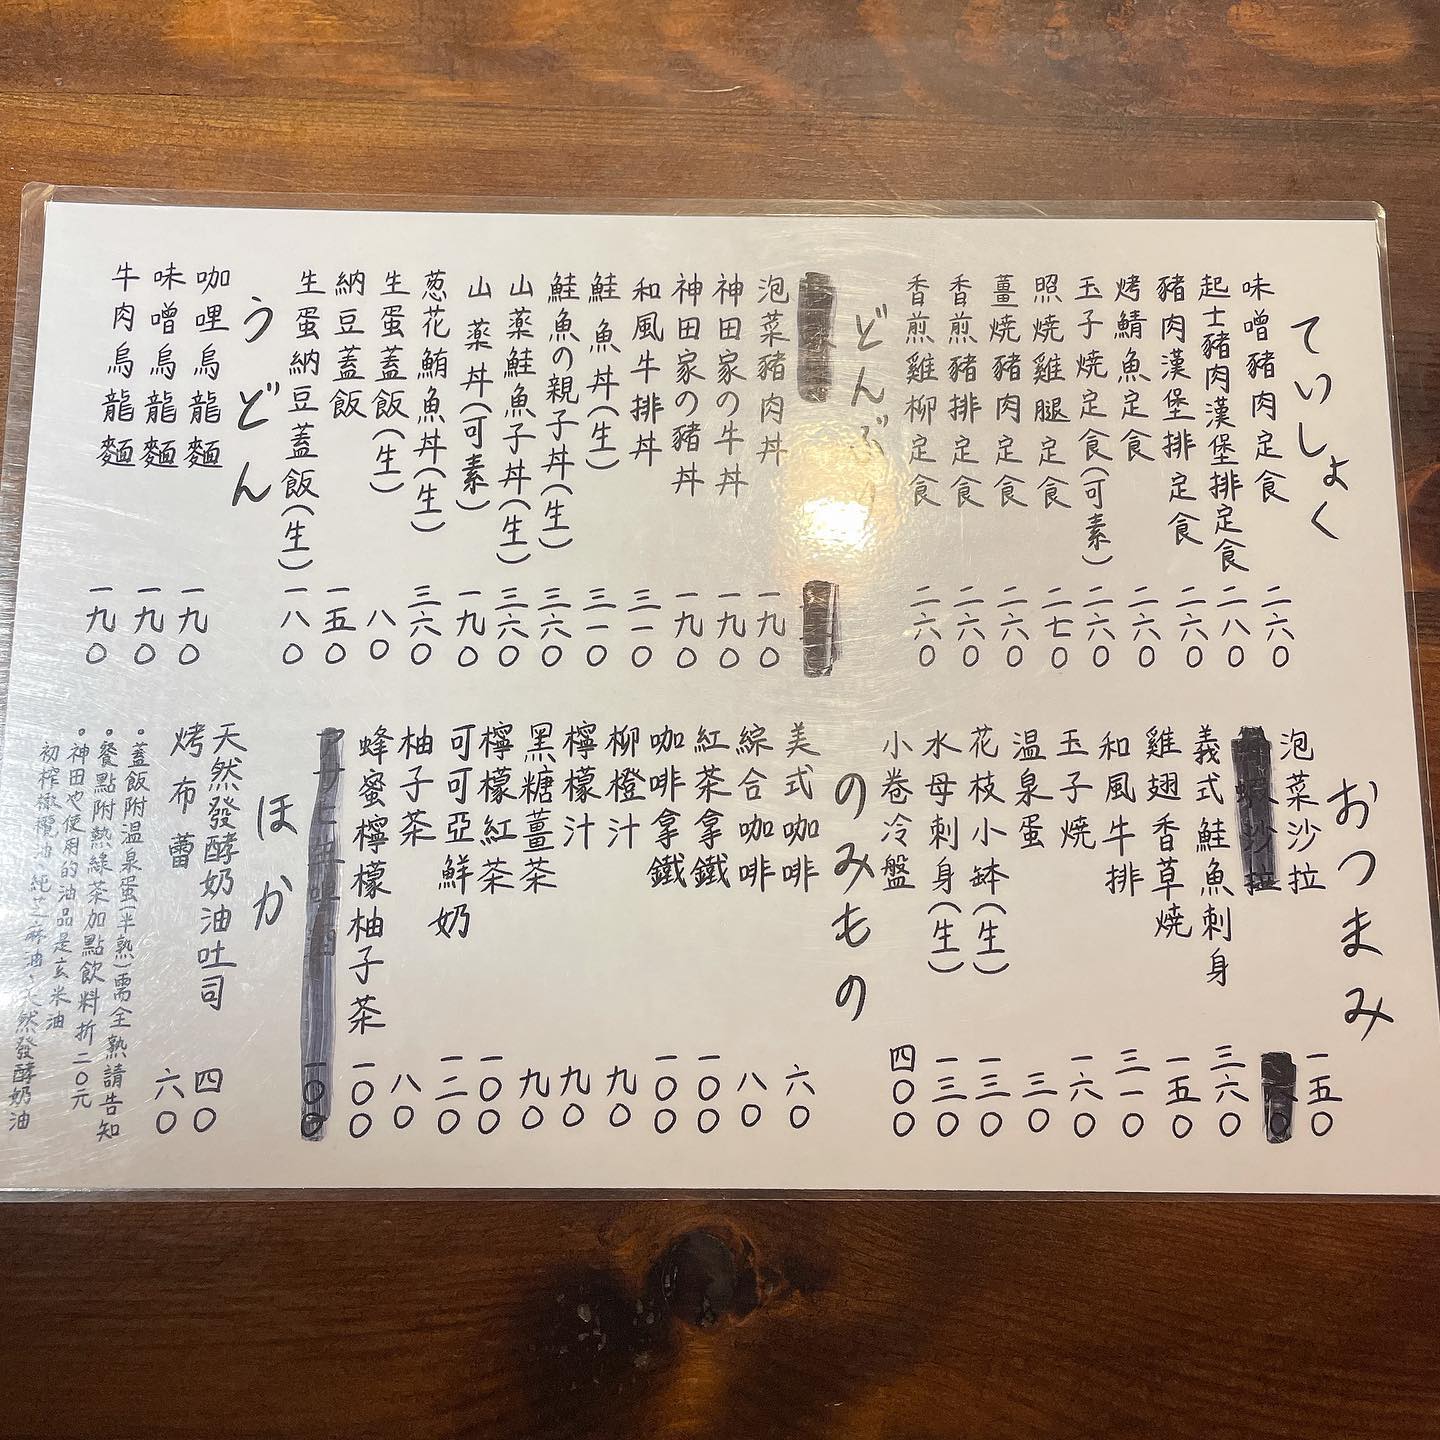 ていしょく
味噌豬肉定食 二六〇
起士豬肉漢堡排定食 二八〇
豬肉漢堡排定食 二六〇
烤鯖魚定食 二六〇
玉子焼定食(可素) 二六〇
照焼雞腿定食 二七〇
薑焼豬肉定食 二六〇
香煎豬排定食 二六〇
香煎雞柳定食 二六〇
どんぶり
泡菜豬肉丼 一九〇
神田家の牛丼 一九〇
神田家の豬丼 一九〇
和風牛排丼 三一〇
鮭魚丼(生) 三一〇
鮭魚の親子丼(生) 三六〇
山薬鮭魚子丼(生) 三六〇
山薬丼(可素) 一九〇
葱花鮪魚丼(生) 三六〇
生蛋蓋飯(生) 八〇
納豆蓋飯 一五〇
生蛋納豆蓋飯(生) 一八〇
うどん
咖哩烏龍麵 一九〇
味噌烏龍麵 一九〇
牛肉烏龍麵 一九〇
おつまみ
泡菜沙拉 一五〇
蝦沙拉
義式鮭魚刺身 三六〇
雞翅香草燒 一五〇
和風牛排 三一〇
玉子燒 一六〇
温泉蛋 三〇
花枝小鉢(生) 一三〇
水母刺身(生) 一三〇
小卷冷盤 四〇〇
のみもの
美式咖啡 六〇
綜合咖啡 八〇
紅茶拿鐵 一〇〇
咖啡拿鐵 一〇〇
柳橙汁 九〇
檸檬汁 九〇
黑糖薑茶 九〇
檸檬紅茶 一〇〇
可可亞鮮奶 一二〇
柚子茶 八〇
蜂蜜檸檬柚子茶 一〇〇
一〇〇
ほか
天然發酵奶油吐司 四〇
烤布蕾 六〇
。蓋飯附温泉蛋(半熟)需全熟請告知
。餐點附熱綠茶加點飲料折二〇元
。神田也使用的油品是玄米油
初榨橄欖油、純芝麻油、天然發酵奶油